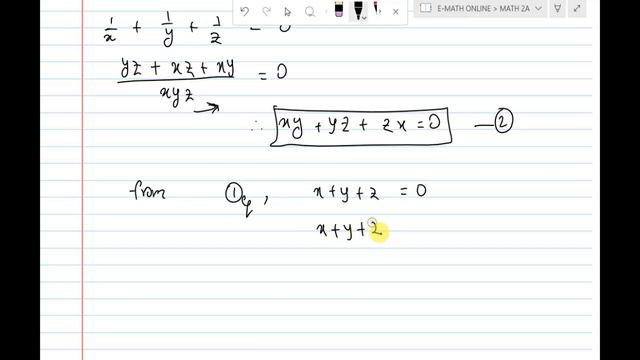 E-MATH ONLINE > MATH 2A
1/x + 1/y + 1/z = 0
(yz + xz + xy)/xyz = 0
∴ xy + yz + zx = 0 — ②
from ①, x + y + z = 0
x + y + z